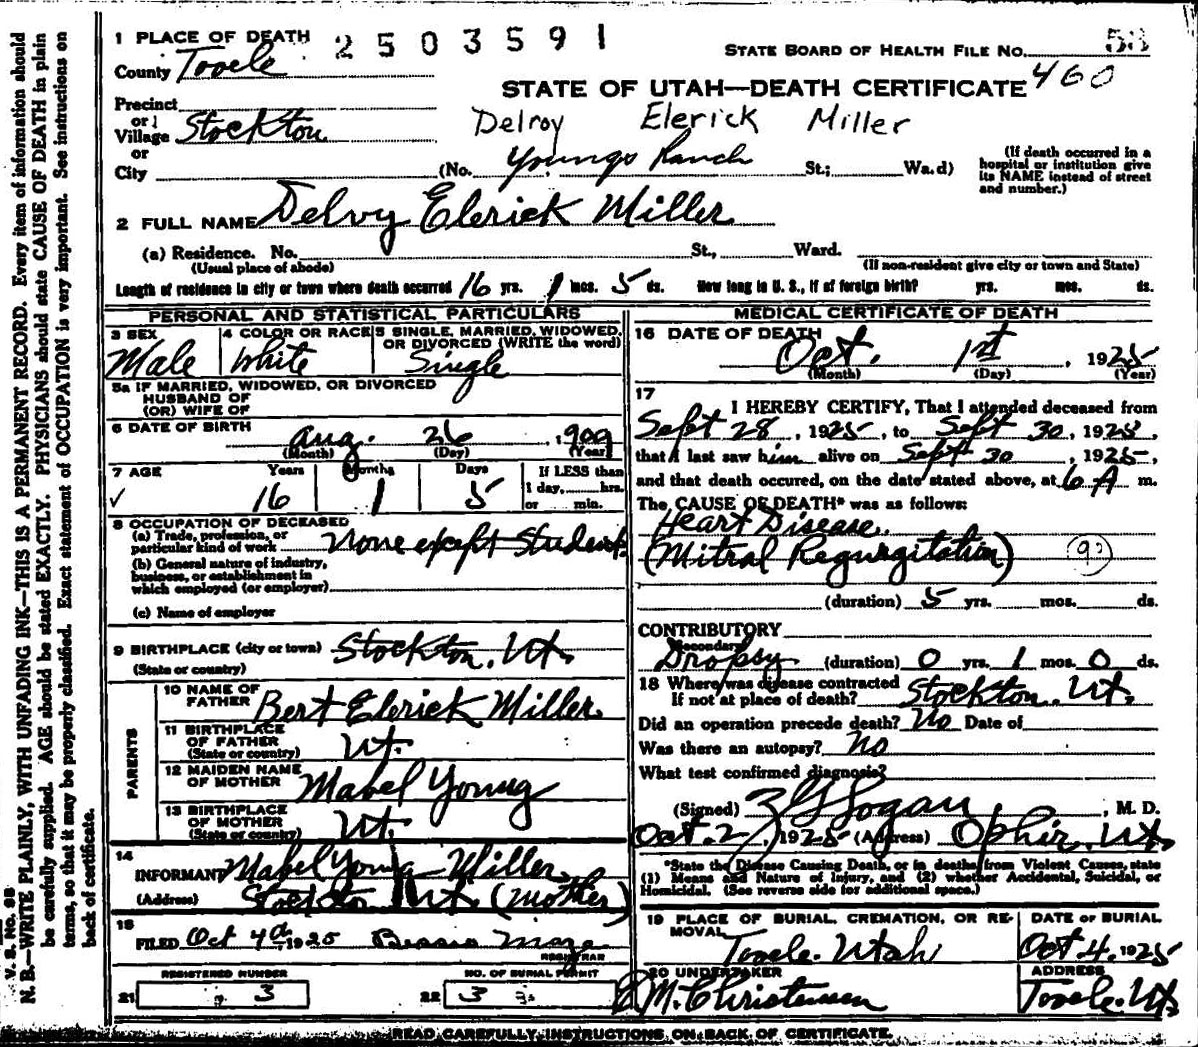 V. S. No. 98
N. B.—WRITE PLAINLY, WITH UNFADING INK—THIS IS A PERMANENT RECORD. Every item of information should
be carefully supplied. AGE should be stated EXACTLY. PHYSICIANS should state CAUSE OF DEATH in plain
terms, so that it may be properly classified. Exact statement of OCCUPATION is very important. See instructions on
back of certificate.
1 PLACE OF DEATH 2503591
STATE BOARD OF HEALTH FILE NO. 53
County Tooele
STATE OF UTAH—DEATH CERTIFICATE 460
Precinct
or
Village Stockton
Delroy Elerick Miller
or
City
(No. Youngs Ranch St.; Ward)
(If death occurred in a
hospital or institution give
its NAME instead of street
and number.)
2 FULL NAME Delroy Elerick Miller
(a) Residence. No. St., Ward.
(Usual place of abode)
(If non-resident give city or town and State)
Length of residence in city or town where death occurred 16 yrs. 1 mos. 5 ds. How long in U. S., if of foreign birth? yrs. mos. ds.
PERSONAL AND STATISTICAL PARTICULARS
3 SEX
Male
4 COLOR OR RACE
White
5 SINGLE, MARRIED, WIDOWED,
OR DIVORCED (WRITE the word)
Single
5a IF MARRIED, WIDOWED, OR DIVORCED
HUSBAND OF
(OR) WIFE OF
6 DATE OF BIRTH
Aug. 26, 1909
(Month) (Day) (Year)
7 AGE Years Months Days If LESS than
1 day, hrs.
or min.
16 1 5
8 OCCUPATION OF DECEASED
(a) Trade, profession, or
particular kind of work None except Student
(b) General nature of industry,
business, or establishment in
which employed (or employer)
(c) Name of employer
9 BIRTHPLACE (city or town) Stockton, Ut.
(State or country)
PARENTS
10 NAME OF
FATHER Bert Elerick Miller
11 BIRTHPLACE
OF FATHER
(State or country) Ut.
12 MAIDEN NAME
OF MOTHER Mabel Young
13 BIRTHPLACE
OF MOTHER
(State or country) Ut.
14
INFORMANT Mabel Young Miller
(Address) Stockton Ut (Mother)
15
FILED Oct 4th 1925 Bessie
REGISTRAR
REGISTERED NUMBER
21 3
NO. OF BURIAL PERMIT
22 3
MEDICAL CERTIFICATE OF DEATH
16 DATE OF DEATH
Oct. 1st, 1925
(Month) (Day) (Year)
17
I HEREBY CERTIFY, That I attended deceased from
Sept 28, 1925, to Sept 30, 1925,
that I last saw him alive on Sept 30, 1925,
and that death occured, on the date stated above, at 6 A m.
The CAUSE OF DEATH* was as follows:
Heart Disease
(Mitral Regurgitation) (90)
(duration) 5 yrs. mos. ds.
CONTRIBUTORY
Secondary
Dropsy (duration) 0 yrs. 1 mos. 0 ds.
18 Where was disease contracted
If not at place of death? Stockton, Ut.
Did an operation precede death? No Date of
Was there an autopsy? No
What test confirmed diagnosis?
(Signed) Logan, M. D.
Oct. 2, 1925 (Address) Ophir, Ut.
*State the Disease Causing Death, or in deaths from Violent Causes, state
(1) Means and Nature of Injury, and (2) whether Accidental, Suicidal, or
Homicidal. (See reverse side for additional space.)
19 PLACE OF BURIAL, CREMATION, OR RE-
MOVAL
Tooele, Utah
DATE OF BURIAL
Oct 4, 1925
20 UNDERTAKER
M. Christensen
ADDRESS
Tooele, Ut.
READ CAREFULLY INSTRUCTIONS ON BACK OF CERTIFICATE.